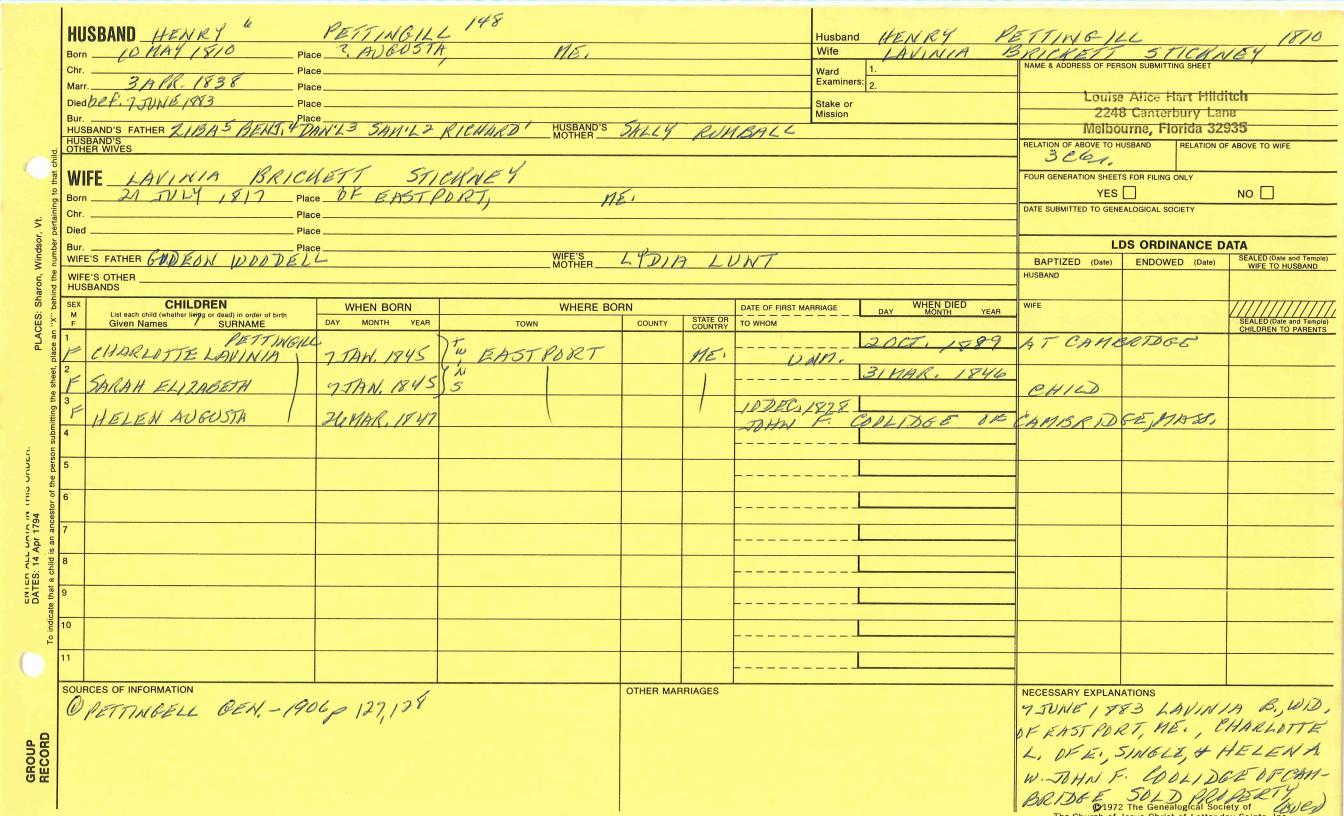 HUSBAND HENRY " PETTINGILL 148
Born 10 MAY 1810 Place ? AUGUSTA, ME.
Chr. Place
Marr. 3 APR. 1838 Place
Died bef. 7 JUNE 1883 Place
Bur. Place
HUSBAND'S FATHER ZIBA5 BENJ.4 DAN'L3 SAM'L2 RICHARD1 HUSBAND'S MOTHER SALLY RUMBALL
HUSBAND'S OTHER WIVES
Husband HENRY PETTINGILL 1810
Wife LAVINIA BRICKETT STICKNEY
Ward Examiners: 1.
2.
Stake or Mission
NAME & ADDRESS OF PERSON SUBMITTING SHEET
Louise Alice Hart Hilditch
2248 Canterbury Lane
Melbourne, Florida 32935
RELATION OF ABOVE TO HUSBAND RELATION OF ABOVE TO WIFE
FOUR GENERATION SHEETS FOR FILING ONLY
YES NO
DATE SUBMITTED TO GENEALOGICAL SOCIETY
WIFE LAVINIA BRICKETT STICKNEY
Born 21 JULY 1817 Place OF EASTPORT, ME.
Chr. Place
Died Place
Bur. Place
WIFE'S FATHER GIDEON WOODELL WIFE'S MOTHER LYDIA LUNT
WIFE'S OTHER HUSBANDS
LDS ORDINANCE DATA
BAPTIZED (Date) ENDOWED (Date) SEALED (Date and Temple) WIFE TO HUSBAND
HUSBAND
WIFE
SEALED (Date and Temple) CHILDREN TO PARENTS
SEX M F CHILDREN WHEN BORN WHERE BORN DATE OF FIRST MARRIAGE WHEN DIED
List each child (whether living or dead) in order of birth
Given Names SURNAME DAY MONTH YEAR TOWN COUNTY STATE OR COUNTRY TO WHOM DAY MONTH YEAR
PETTINGILL
1 F CHARLOTTE LAVINIA 7 JAN. 1845 TWINS EASTPORT ME. UNM. 2 OCT. 1889 AT CAMBRIDGE
2 F SARAH ELIZABETH 7 JAN. 1845 31 MAR. 1846 CHILD
3 F HELEN AUGUSTA 26 MAR. 1847 10 DEC. 1878
JOHN F. COOLIDGE OF CAMBRIDGE, MASS.
4
5
6
7
8
9
10
11
SOURCES OF INFORMATION
① PETTINGELL GEN. - 1906 p 127, 128
OTHER MARRIAGES
NECESSARY EXPLANATIONS
7 JUNE 1883 LAVINIA B., WID.
OF EASTPORT, ME., CHARLOTTE
L. OF E., SINGLE, & HELEN A
W. JOHN F. COOLIDGE OF CAM-
BRIDGE SOLD PROPERTY
(over)
©1972 The Genealogical Society of
The Church of Jesus Christ of Latter-day Saints, Inc.
ENTER ALL DATA IN THIS ORDER:
DATES: 14 Apr 1794
PLACES: Sharon, Windsor, Vt.
To indicate that a child is an ancestor of the person submitting the sheet, place an "X" behind the number pertaining to that child.
GROUP
RECORD